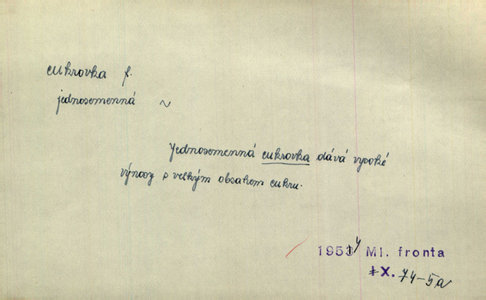 cukrovka f.
jednosemenná ~
Jednosemenná cukrovka dává vysoké
výnosy s velkým obsahem cukru.
1954 Ml. fronta
X. 74-5a